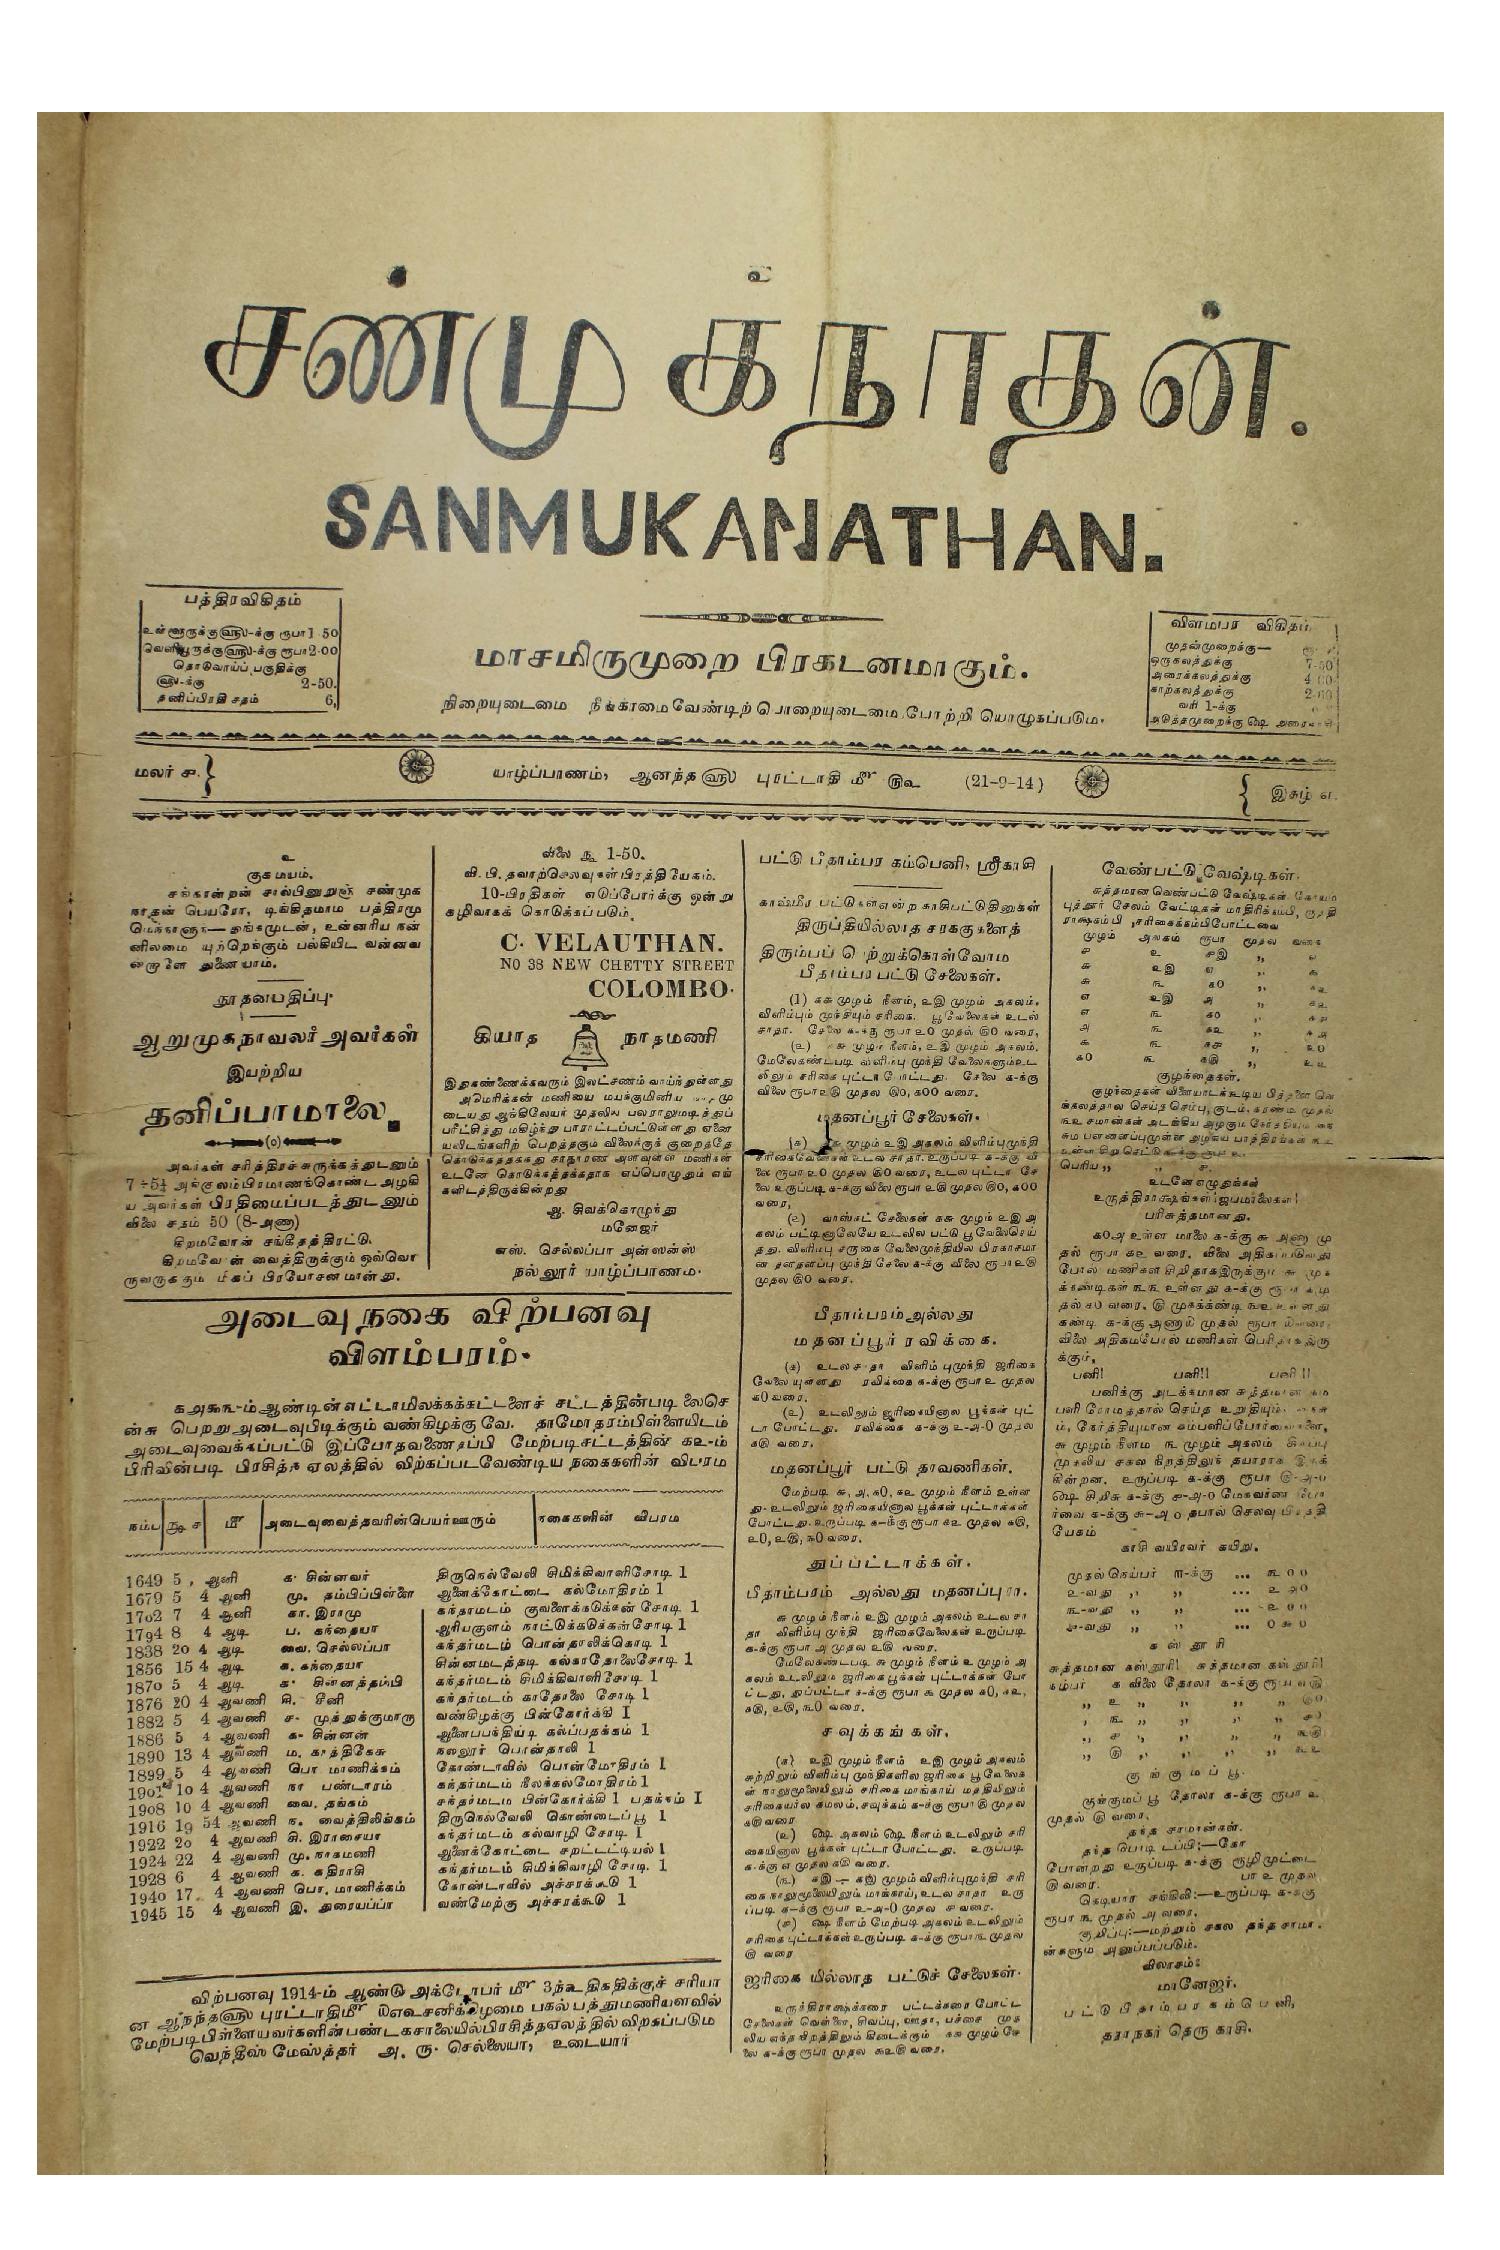 உ
சண்முகநாதன்.
SANMUKANATHAN.
பத்திரவிகிதம்
உள்ளூருக்கு௵-க்கு ரூபா1-50
வெளியூருக்கு௵-க்கு ரூபா2-00
தொடுவாய்ப் பகுதிக்கு
௵-க்கு 2-50.
தனிப்பிரதி சதம் 6,
மாசமிருமுறை பிரகடனமாகும்.
நிறையுடைமை நீங்காமைவேண்டிற் பொறையுடைமை போற்றி யொழுகப்படும்.
விளம்பர விகிதம்
முதன்முறைக்கு—
ஒருகலத்துக்கு 7-50
அரைக்கலத்துக்கு 4-00
காற்கலத்துக்கு 2-00
வரி 1-க்கு
அடுத்தமுறைக்கு ௸ அரைவாசி
மலர் ௪.
யாழ்ப்பாணம், ஆனந்த ௵ புரட்டாதி ௴ ௫௨ (21-9-14)
இதழ் ௭.
உ
குகமயம்.
சங்கான்றன் சால்பினுறுஞ் சண்முக
நாதன் பெயரோ, டிங்கிதமாம் பத்திரமு
னிலமை யுற்றெங்கும் பல்கியிட வன்னவ
துணையாம்.
நூதனபதிப்பு.
ஆறுமுகநாவலர் அவர்கள்
இயற்றிய
தனிப்பாமாலை
அவர்கள் சரித்திரச்சுருக்கத்துடனும்
7 ÷ 5½ அங்குலம்பிரமாணங்கொண்ட அழகி
ய அவர்கள் பிரதிமைப்படத்துடனும்
விலை சதம் 50 (8-அணா)
கிறமவோன் சங்கீதத்திரட்டு.
கிறமவோன் வைத்திருக்கும் ஒவ்வொ
ருவருக்கும் மிகப் பிரயோசனமானது.
விலை ரூ 1-50.
வி. பி. தவாற்செலவுகள் பிரத்தியேகம்.
10-பிரதிகள் எடுப்போர்க்கு ஒன்று
கழிவாகக் கொடுக்கப்படும்.
C. VELAUTHAN.
NO 38 NEW CHETTY STREET
COLOMBO.
கியாத நாதமணி
இதுகண்ணைக்கவரும் இலட்சணம் வாய்ந்துள்ளது
டையது ஆங்கிலேயர் முதலிய பலராலுமடித்துப்
பரீட்சித்து மகிழ்ந்து பாராட்டப்பட்டுள்ளது ஏனை
யவிடங்களிற் பெறத்தகும் விலைக்குக் குறைத்தே
கொடுக்கத்தக்கது சாதாரண அளவுள்ள மணிகள்
உடனே கொடுக்கத்தக்கதாக எப்பொழுதும் எங்
களிடத்திருக்கின்றது
ஆ. சிவக்கொழுந்து
மனேஜர்
எஸ். செல்லப்பா அன்ஸன்ஸ்
நல்லூர் யாழ்ப்பாணம்.
அடைவு நகை விற்பனவு
விளம்பரம்.
௧௮௯௩-ம்ஆண்டின்எட்டாமிலக்கக்கட்டளைச் சட்டத்தின்படி லைசெ
ன்சு பெற்றுஅடைவுபிடிக்கும் வண்கிழக்கு வே. தாமோதரம்பிள்ளையிடம்
அடைவுவைக்கப்பட்டு இப்போதவணைதப்பி மேற்படிசட்டத்தின் ௧௨-ம்
பிரிவின்படி பிரசித்த ஏலத்தில் விற்கப்படவேண்டிய நகைகளின் விபரம்
நம்ப ரூ ச ௴ அடைவுவைத்தவரின்பெயர்ஊரும் நகைகளின் விபரம்
1649 5 , ஆனி க. சின்னவர் திருநெல்வேலி சிமிக்கிவாளிசோடி 1
1679 5 4 ஆனி மு. தம்பிப்பிள்ளை ஆனைக்கோட்டை கல்மோதிரம் 1
1702 7 4 ஆனி கா. இராமு கந்தர்மடம் குவளைக்கடுக்கன் சோடி 1
1794 8 4 ஆடி ப. கந்தையா ஆரியகுளம் நாட்டுக்கடுக்கன்சோடி 1
1838 20 4 ஆடி வை. செல்லப்பா கந்தர்மடம் பொன்தாலிக்கொடி 1
1856 15 4 ஆடி க. கந்தையா சின்னமடத்தடி கல்காதோலைசோடி 1
1870 5 4 ஆடி க. சின்னத்தம்பி கந்தர்மடம் சிமிக்கிவாளிசோடி 1
1876 20 4 ஆவணி சி. சீனி கந்தர்மடம் காதோலை சோடி 1
1882 5 4 ஆவணி ச. முத்துக்குமாரு வண்கிழக்கு பின்கோர்க்கி I
1886 5 4 ஆவணி க. சின்னன் கல்ப்பதக்கம் 1
1890 13 4 ஆவணி ம. கார்த்திகேசு நல்லூர் பொன்தாலி 1
1899 5 4 ஆவணி பொ மாணிக்கம் கோண்டாவில் பொன்மோதிரம் 1
1901 10 4 ஆவணி நா பண்டாரம் கந்தர்மடம் நீலக்கல்மோதிரம் 1
1908 10 4 ஆவணி வை. தங்கம் கந்தர்மடம் பின்கோர்க்கி 1 பதக்கம் I
1916 19 54 ஆவணி ந. வைத்திலிங்கம் திருநெல்வேலி கொண்டைப்பூ 1
1922 20 4 ஆவணி சி. இராசையா கந்தர்மடம் கல்வாழி சோடி I
1924 22 4 ஆவணி மு. நாகமணி ஆனைக்கோட்டை சறட்டட்டியல் 1
1928 6 4 ஆவணி க. கதிராசி கந்தர்மடம் சிமிக்கிவாழி சோடி. 1
1940 17 4 ஆவணி பொ. மாணிக்கம் கோண்டாவில் அச்சரக்கூடு 1
1945 15 4 ஆவணி இ. துரையப்பா வண்மேற்கு அச்சரக்கூடு 1
விற்பனவு 1914-ம் ஆண்டு அக்டோபர் ௴ 3ந்உ திகதிக்குச் சரியா
ன ஆநந்த௵ புரட்டாதி௴ ௰௭௨சனிக்கிழமை பகல் பத்துமணியளவில்
மேற்படிபிள்ளையவர்களின்பண்டகசாலையில்பிரசித்தஏலத்தில் விற்கப்படும்
வெந்தீஸ் மேஸ்த்தர் அ. ரு. செல்லையா, உடையார்
பட்டு பீதாம்பர கம்பெனி, ஸ்ரீகாசி
காஷ்மீர பட்டுகள்என்ற காசிபட்டுதினுசுகள்
திருப்தியில்லாத சரக்குகளைத்
திரும்பப் பெற்றுக்கொள்வோம்
பீதாம்பர பட்டு சேலைகள்.
(1) ௧௬ முழம் நீளம், ௨௫ முழம் அகலம்.
விளிம்பும் முந்தியும் சரிகை. பூவேலைகள் உடல்
சாதா. சேலை ௧-க்கு ரூபா ௨0 முதல் ௫0 வரை,
(௨) ௧௬ முழம் நீளம், ௨௫ முழம் அகலம்.
மேலேகண்டபடி விளிம்பு முந்தி வேலைகளும்உட
லிலும் சரிகை புட்டா போட்டது. சேலை ௧-க்கு
விலை ரூபா௨௫ முதல் ௫0, ௧00 வரை.
மதனப்பூர் சேலைகள்.
(௧) ௧௬ முழம் ௨௫ அகலம் விளிம்புமுந்தி
சரிகைவேலைகள் உடல் சாதா. உருப்படி ௧-க்கு வி
லை ரூபா ௨0 முதல் ௫0 வரை, உடல் புட்டா சே
லை உருப்படி ௧-க்கு விலை ரூபா ௨௫ முதல் ௫0, ௧00
வரை,
(௨) வாஸ்கட் சேலைகள் ௧௬ முழம் ௨௫ அ
கலம் பட்டினாலேயே உடலில் பட்டு பூவேலைசெய்
தது. விளிம்பு சருகை வேலைமுந்தியில் பிரகாசமா
ன தளதளப்பு முந்தி சேலை ௧-க்கு விலை ரூபா௨௫
முதல் ௫0 வரை.
பீதாம்பரம்அல்லது
மதனப்பூர் ரவிக்கை.
(௧) உடல் சாதா விளிம்புமுந்தி ஜரிகை
வேலையுள்ளது ரவிக்கை ௧-க்கு ரூபா ௨ முதல்
௧0 வரை.
(௨) உடலிலும் ஜரிகையினால் பூக்கள் புட்
டா போட்டது. ரவிக்கை ௧-க்கு ௨-௮-0 முதல்
௧௫ வரை.
மதனப்பூர் பட்டு தாவணிகள்.
மேற்படி ௬, ௮, ௧0, ௧௨ முழம் நீளம் உள்ள
து. உடலிலும் ஜரிகையினால் பூக்கள் புட்டாக்கள்
போட்டது. உருப்படி ௧-க்கு ரூபா ௧௨ முதல் ௧௫,
௨0, ௨௫, ௩0 வரை.
துப்பட்டாக்கள்.
பீதாம்பரம் அல்லது மதனப்பூர்.
௬ முழம் நீளம் ௨௫ முழம் அகலம் உடல் சா
தா விளிம்பு முந்தி ஜரிகைவேலைகள் உருப்படி
௧-க்கு ரூபா ௮ முதல் ௨௫ வரை.
மேலேகண்டபடி ௬ முழம் நீளம் ௨ முழம் அ
கலம் உடலிலும் ஜரிகை பூக்கள் புட்டாக்கள் போ
ட்டது, துப்பட்டா ௧-க்கு ரூபா ௯ முதல் ௧0, ௧௨,
௧௫, ௨௫, ௩0 வரை.
சவுக்கங்கள்.
(௧) ௨௫ முழம் நீளம் ௨௫ முழம் அகலம்
சுற்றிலும் விளிம்பு முந்திகளில் ஜரிகை பூ வேலைக
ள் நாலுமூலையிலும் சரிகை மாங்காய் மத்தியிலும்
சரிகையால் கமலம். சவுக்கம் ௧-க்கு ரூபா௫ முதல்
௧௫ வரை
(௨) ௸ அகலம் ௸ நீளம் உடலிலும் சரி
கையினால் பூக்கள் புட்டா போட்டது. உருப்படி
௧-க்கு ௭ முதல் ௧௫ வரை.
முழம் விளிம்புமுந்தி சரி
கை நாலுமூலையிலும் மாங்காய், உடல் சாதா உரு
ப்படி ௧-க்கு ரூபா ௨-௮-0 முதல் ௪ வரை.
(௪) ௸ நீளம் மேற்படி அகலம் உடலிலும்
சரிகை புட்டாக்கள் உருப்படி ௧-க்கு ரூபா ௩ முதல்
௫ வரை
ஜரிகை யில்லாத பட்டுச் சேலைகள்.
உருத்திராக்ஷக்கரை பட்டக்கரை போட்ட
சேலைகள் வெள்ளை, சிவப்பு, ஊதா, பச்சை முத
லிய எந்த நிறத்திலும் கிடைக்கும் ௧௬ முழம் சே
லை ௧-க்கு ரூபா முதல் ௧௨௫ வரை.
வேண்பட்டு வேஷ்டிகள்.
சுத்தமான வெண்பட்டு வேஷ்டிகள். கோயம்
புத்தூர் சேலம் வேட்டிகள் மாதிரிக்கம்பி, ருத்தி
ராக்ஷகம்பி, சரிகைக்கம்பிபோட்டவை
முழம் அகலம் ரூபா முதல் வரை
குழந்தைகள்.
குழந்தைகள் விளையாடக்கூடிய பித்தளை வெ
உடனே எழுதுங்கள்
உருத்திராக்ஷங்கள்! ஜபமாலைகள்!
பரிசுத்தமானது.
௧0௮ உள்ள மாலை ௧-க்கு ௬ அணா மு
தல் ரூபா ௧௨ வரை. விலை அதிகப்படுவது
போல் மணிகள் சிறிதாகஇருக்கும்
கண்டி ௧-க்கு அணா முதல் ரூபா
விலை அதிகமபோல் மணிகள் பெரிதாகஇரு
க்கும்.
பனி! பனி!! பனி!!
பனிக்கு அடக்கமான சுத்தமான கம்
பளி ரோமத்தால் செய்த உறுதியும்,
ம், நேர்த்தியுமான கம்பளிப்போர்வைகளை,
௬ முழம் நீளம் ௩ முழம் அகலம் சிகப்பு
முதலிய சகல நிறத்திலும் தயாராக இருக்
கின்றன. உருப்படி ௧-க்கு ரூபா ௫-௮-0
௸ சிறிசு ௧-க்கு ௪-௮-0 மேகவர்ண போ
ர்வை ௧-க்கு ௬-௮ 0 தபால் செலவு பிரத்தி
யேகம்
காசி வயிரவர் கயிறு.
முதல்நெம்பர் ௱-க்கு ... ௩ 0 0
௨-வது ,, ,, ... ௨ ௮ 0
௩-வது ,, ,, ... ௨ 0 0
௪-வது ,, ,, ... 0 ௬ 0
கஸ்தூரி
சுத்தமான கஸ்தூரி! சுத்தமான கஸ்தூரி!
குங்குமப்பூ.
குங்குமப் பூ தோலா ௧-க்கு ரூபா ௨
முதல் ௫ வரை.
தந்த சாமான்கள்.
தந்த பொடி டப்பி:—கோ
போன்றது உருப்படி ௧-க்கு
௫ வரை.
கெடியார சங்கிலி:—உருப்படி ௧-க்கு
ரூபா ௩ முதல் ௮ வரை.
குறிப்பு:—மற்றும் சகல தந்த சாமா
ன்களும் அனுப்பப்படும்.
விலாசம்:
மானேஜர்,
பட்டு பீதாம்பர கம்பெனி,
தாராநகர் தெரு காசி.